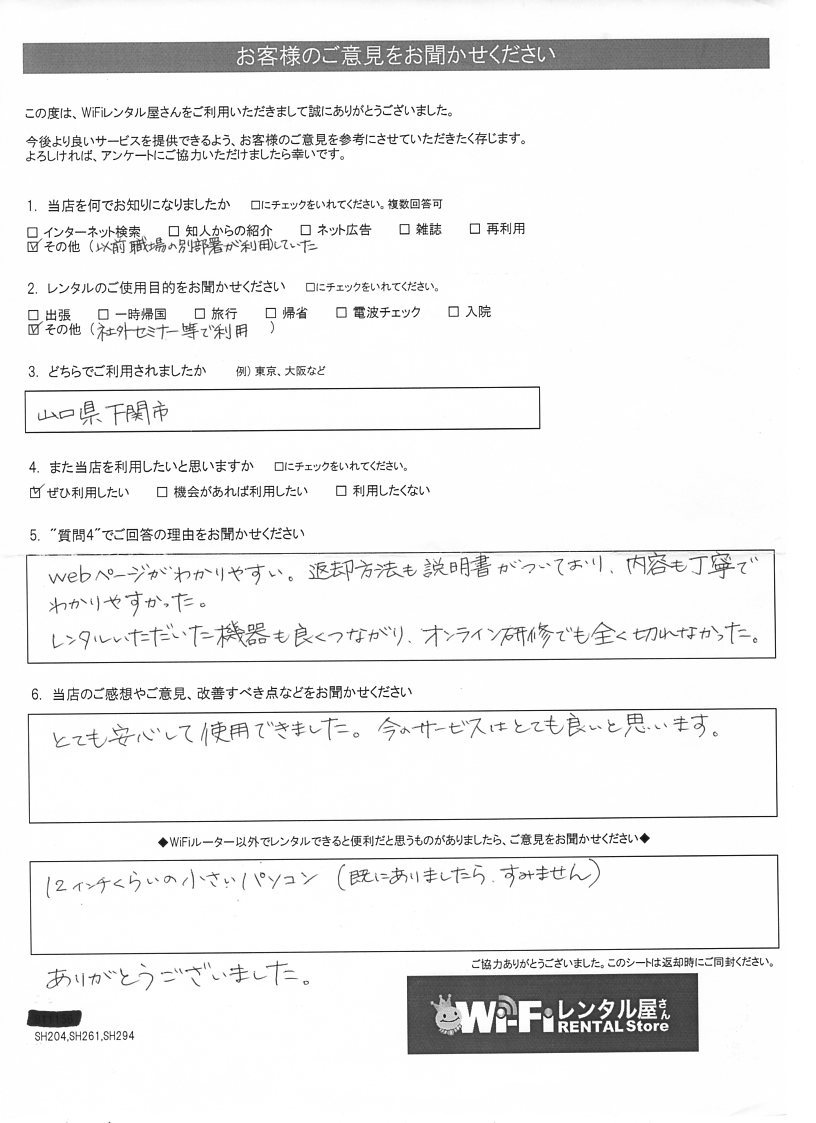 お客様のご意見をお聞かせください
この度は、WiFiレンタル屋さんをご利用いただきまして誠にありがとうございました。
今後より良いサービスを提供できるよう、お客様のご意見を参考にさせていただきたく存じます。
よろしければ、アンケートにご協力いただけましたら幸いです。
1. 当店を何でお知りになりましたか □にチェックをいれてください。複数回答可
□ インターネット検索 □ 知人からの紹介 □ ネット広告 □ 雑誌 □ 再利用
☑ その他 (以前職場の別部署が利用していた
2. レンタルのご使用目的をお聞かせください □にチェックをいれてください。
□ 出張 □ 一時帰国 □ 旅行 □ 帰省 □ 電波チェック □ 入院
☑ その他 (社外セミナー等で利用 )
3. どちらでご利用されましたか 例) 東京、大阪など
山口県下関市
4. また当店を利用したいと思いますか □にチェックをいれてください。
☑ ぜひ利用したい □ 機会があれば利用したい □ 利用したくない
5. "質問4"でご回答の理由をお聞かせください
webページがわかりやすい。返却方法も説明書がついており、内容も丁寧で
わかりやすかった。
レンタルいただいた機器も良くつながり、オンライン研修でも全く切れなかった。
6. 当店のご感想やご意見、改善すべき点などをお聞かせください
とても安心して使用できました。今のサービスはとても良いと思います。
◆WiFiルーター以外でレンタルできると便利だと思うものがありましたら、ご意見をお聞かせください◆
12インチくらいの小さいパソコン (既にありましたら、すみません)
ご協力ありがとうございました。このシートは返却時にご同封ください。
ありがとうございました。
Wi-Fiレンタル屋さん
RENTAL Store
SH204,SH261,SH294